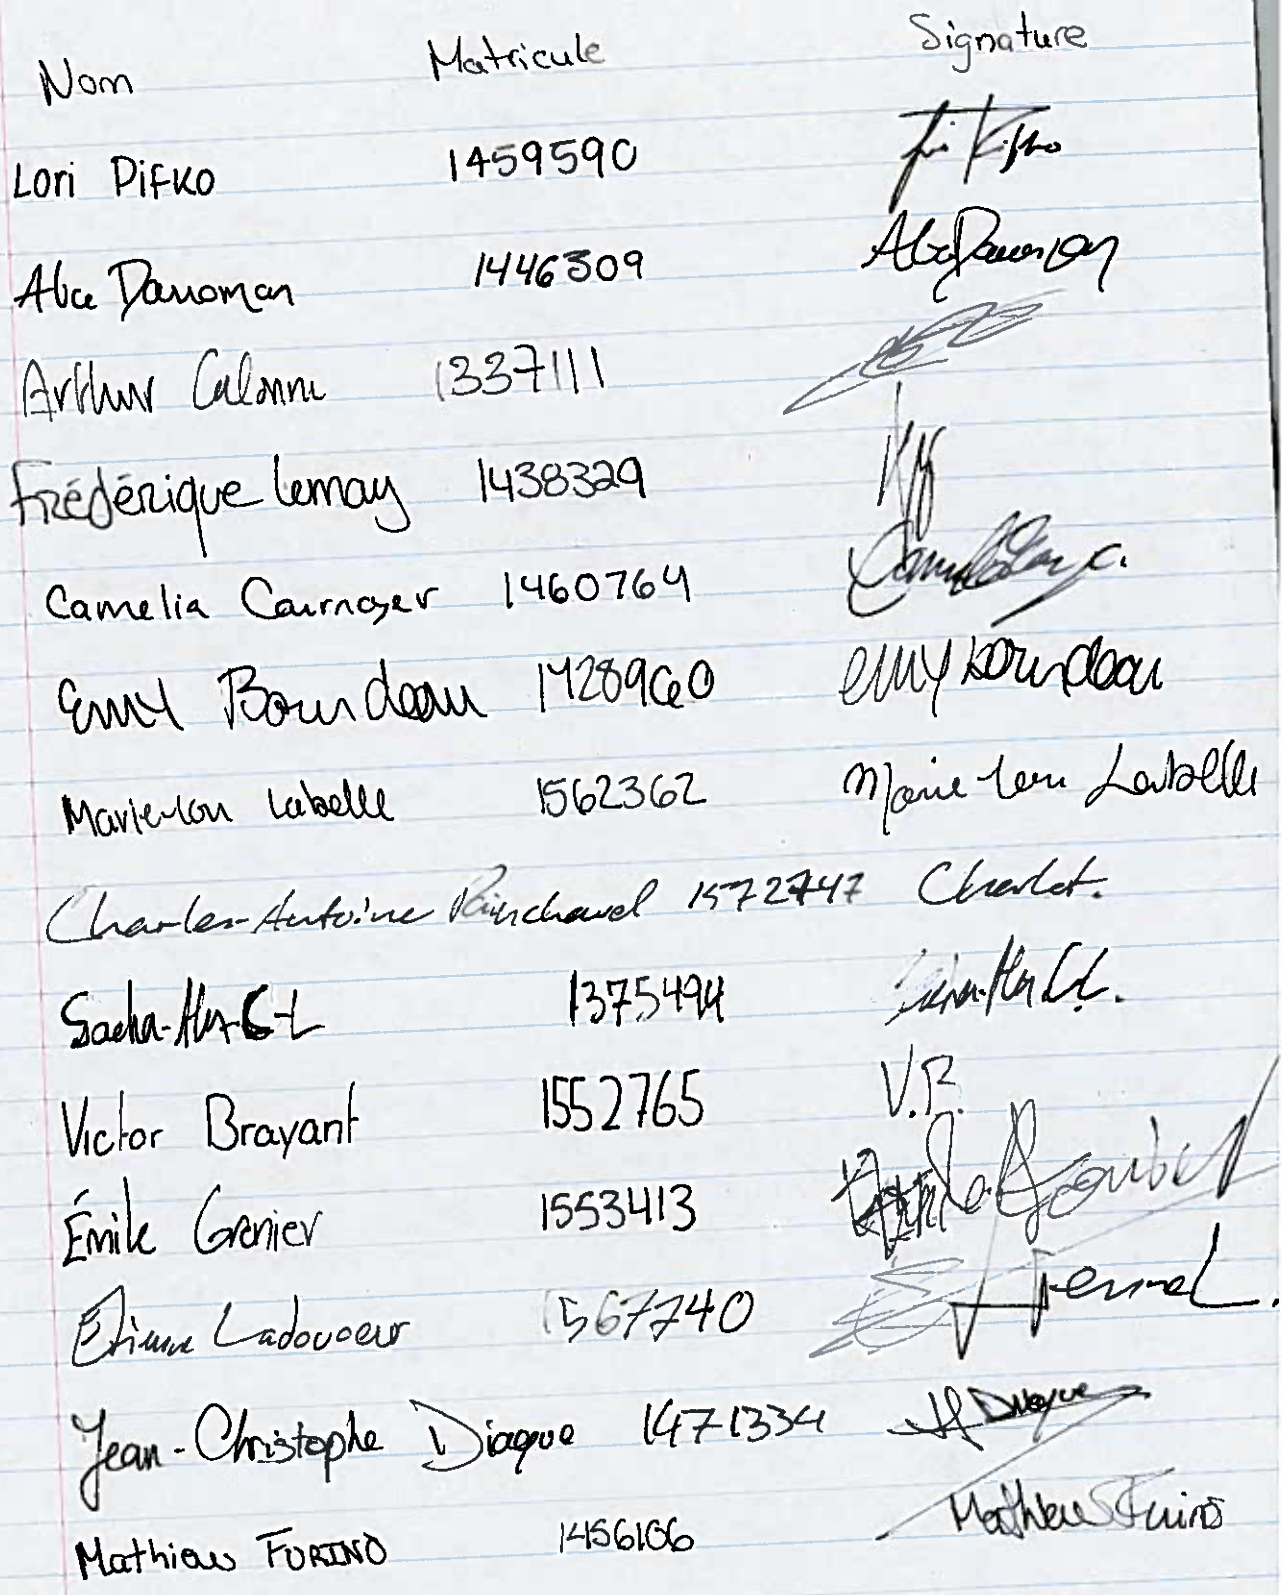 Nom Matricule Signature
Lori Pifko 1459590 Lori Pifko
1446309
Arthur 1337111
Frédérique Lemay 1438329
Camelia Cournoyer 1460764
Emy Bourdeau 1428960 emy bourdeau
Marie-lou Labelle 1562362 Marie-lou Labelle
Charles-Antoine 1572747
Sacha- C-L 1375494
Victor Brayant 1552765 V.B.
Émile Grenier 1553413
Étienne Ladouceur 1567740
Jean-Christophe Diaque 1471334
Mathieu FURINO 1456106 Mathieu Furino